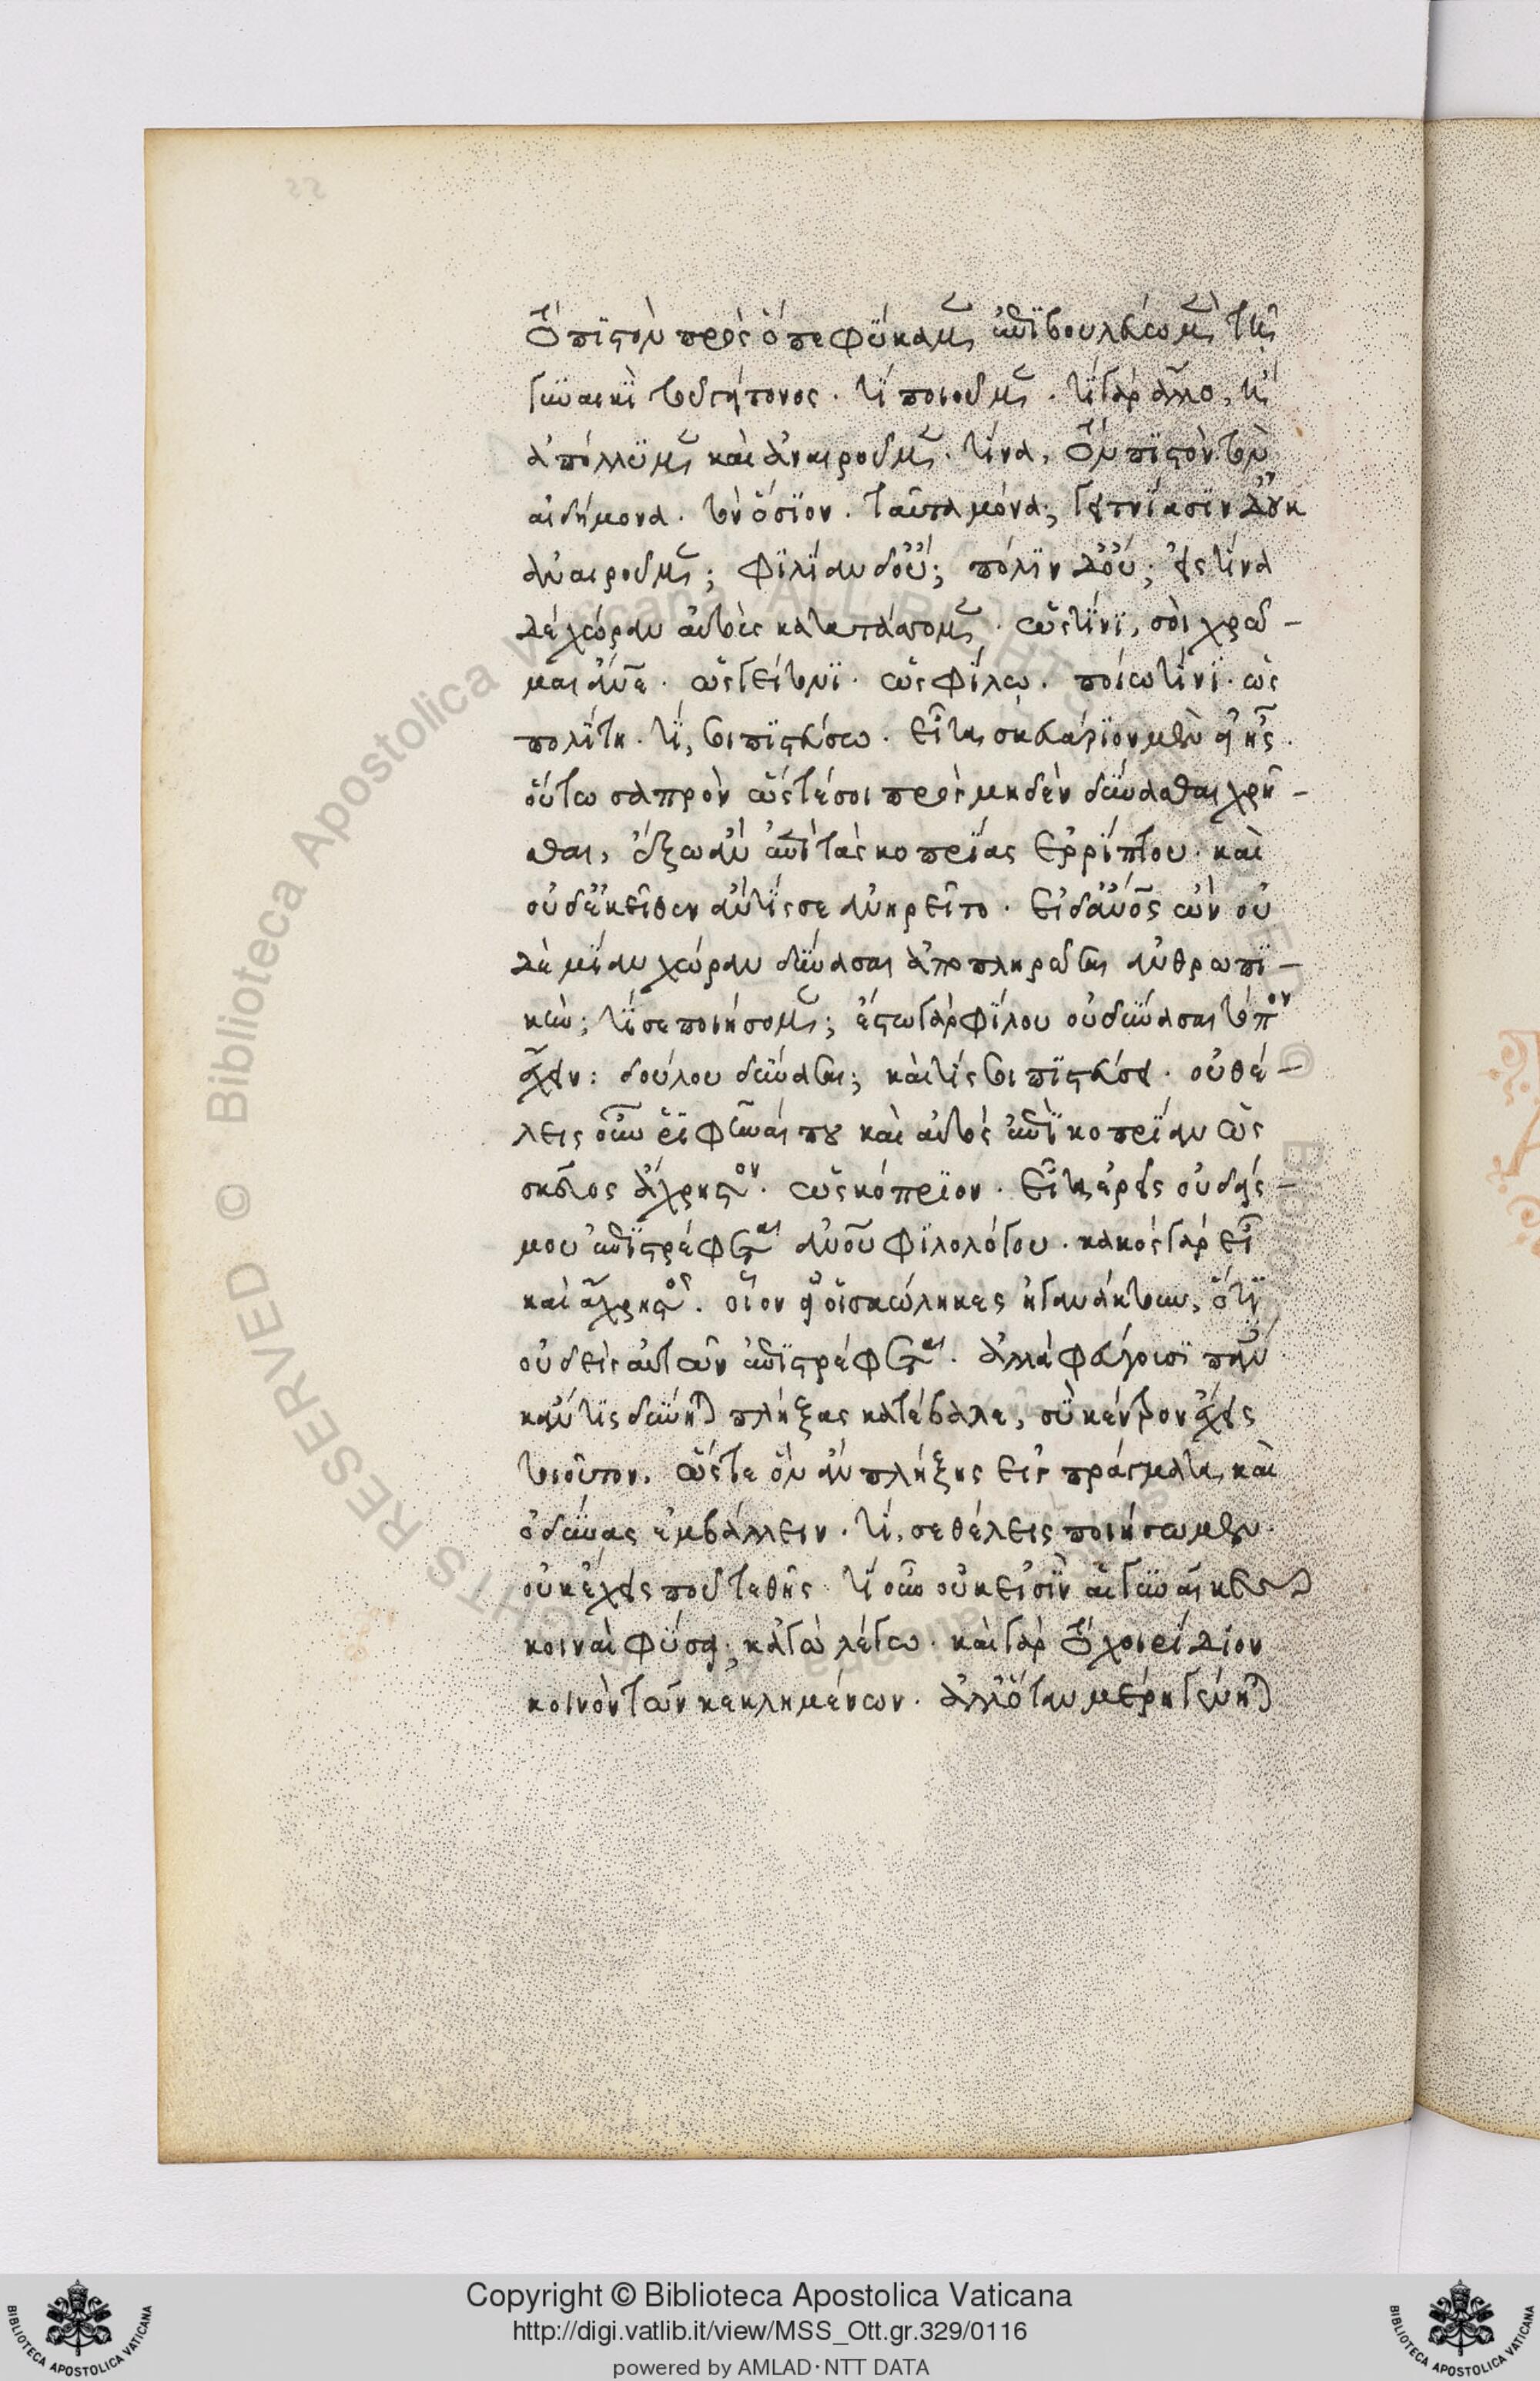 τὸ πιστὸν πρὸς ὃ πεφύκαμεν ἐπιβουλεύωμεν τῇ
γυναικὶ τοῦ γείτονος. τί ποιοῦμεν. τί γὰρ ἄλλο, ἢ
ἀπόλλυμεν καὶ ἀναιροῦμεν. τίνα, τὸν πιστὸν τὸν
αἰδήμονα. τὸν ὅσιον. ταῦτα μόνα; γειτνίασιν δ' οὐκ
ἀναιροῦμεν; φιλίαν δ' οὔ; πόλιν δ' οὔ; εἰς τίνα
δὲ χώραν αὑτοὺς κατατάσσομεν. ὡς τίνι, σοὶ χρῶ-
μαι ἄνε. ὡς γείτονι. ὡς φίλῳ. ποίῳ τινί. ὡς
πολίτῃ. τί, σοι πιστεύσω. εἶτα σκευάριον μὲν εἰ ἦς
οὕτω σαπρὸν ὥστέ σοι πρὸς μηδὲν δύνασθαι χρῆ-
σθαι, ἔξω ἂν ἐπὶ τὰς κοπρίας ἐρρίπτου. καὶ
οὐδ' ἐκεῖθεν ἄν τίς σε ἀνηρεῖτο. εἰ δ' ἄνος ὢν οὐ
δὲ μίαν χώραν δύνασαι ἀποπληρῶσαι ἀνθρωπι-
κήν; τί σε ποιήσομεν; ἔστω γὰρ φίλου οὐ δύνασαι τόπον
ἔχειν: δούλου δύνασαι; καὶ τίς σοι πιστεύσει. οὐ θέ-
λεις οὖν ῥιφῆναί που καὶ αὐτὸς ἐπὶ κοπρίαν ὡς
σκεῦος ἄχρηστον. ὡς κόπριον. εἶτα ἐρεῖς οὐδείς
μου ἐπιστρέφεται ἀνοῦ φιλολόγου. κακὸς γὰρ εἶ
καὶ ἄχρηστος. οἷον εἰ οἱ σκώληκες ἠγανάκτουν, ὅτι
οὐδεὶς αὐτῶν ἐπιστρέφεται. ἀλλὰ φεύγουσι πάντες
κἄν τις δύνηται πλήξας κατέβαλε, σὺ κέντρον ἔχεις
τοιοῦτον. ὥστε ὃν ἂν πλήξῃς εἰς πράγματα καὶ
ὀδύνας ἐμβάλλειν. τί, σε θέλεις ποιήσωμεν
οὐκ ἔχεις ποῦ τεθῇς. τί οὖν οὐκ εἰσὶν αἱ γυναῖκες
κοιναὶ φύσει; κἀγὼ λέγω. καὶ γὰρ τὸ χοιρίδιον
κοινὸν τῶν κεκλημένων. ἀλλ' ὅταν μέρη γένηται
Copyright © Biblioteca Apostolica Vaticana
http://digi.vatlib.it/view/MSS_Ott.gr.329/0116
powered by AMLAD·NTT DATA